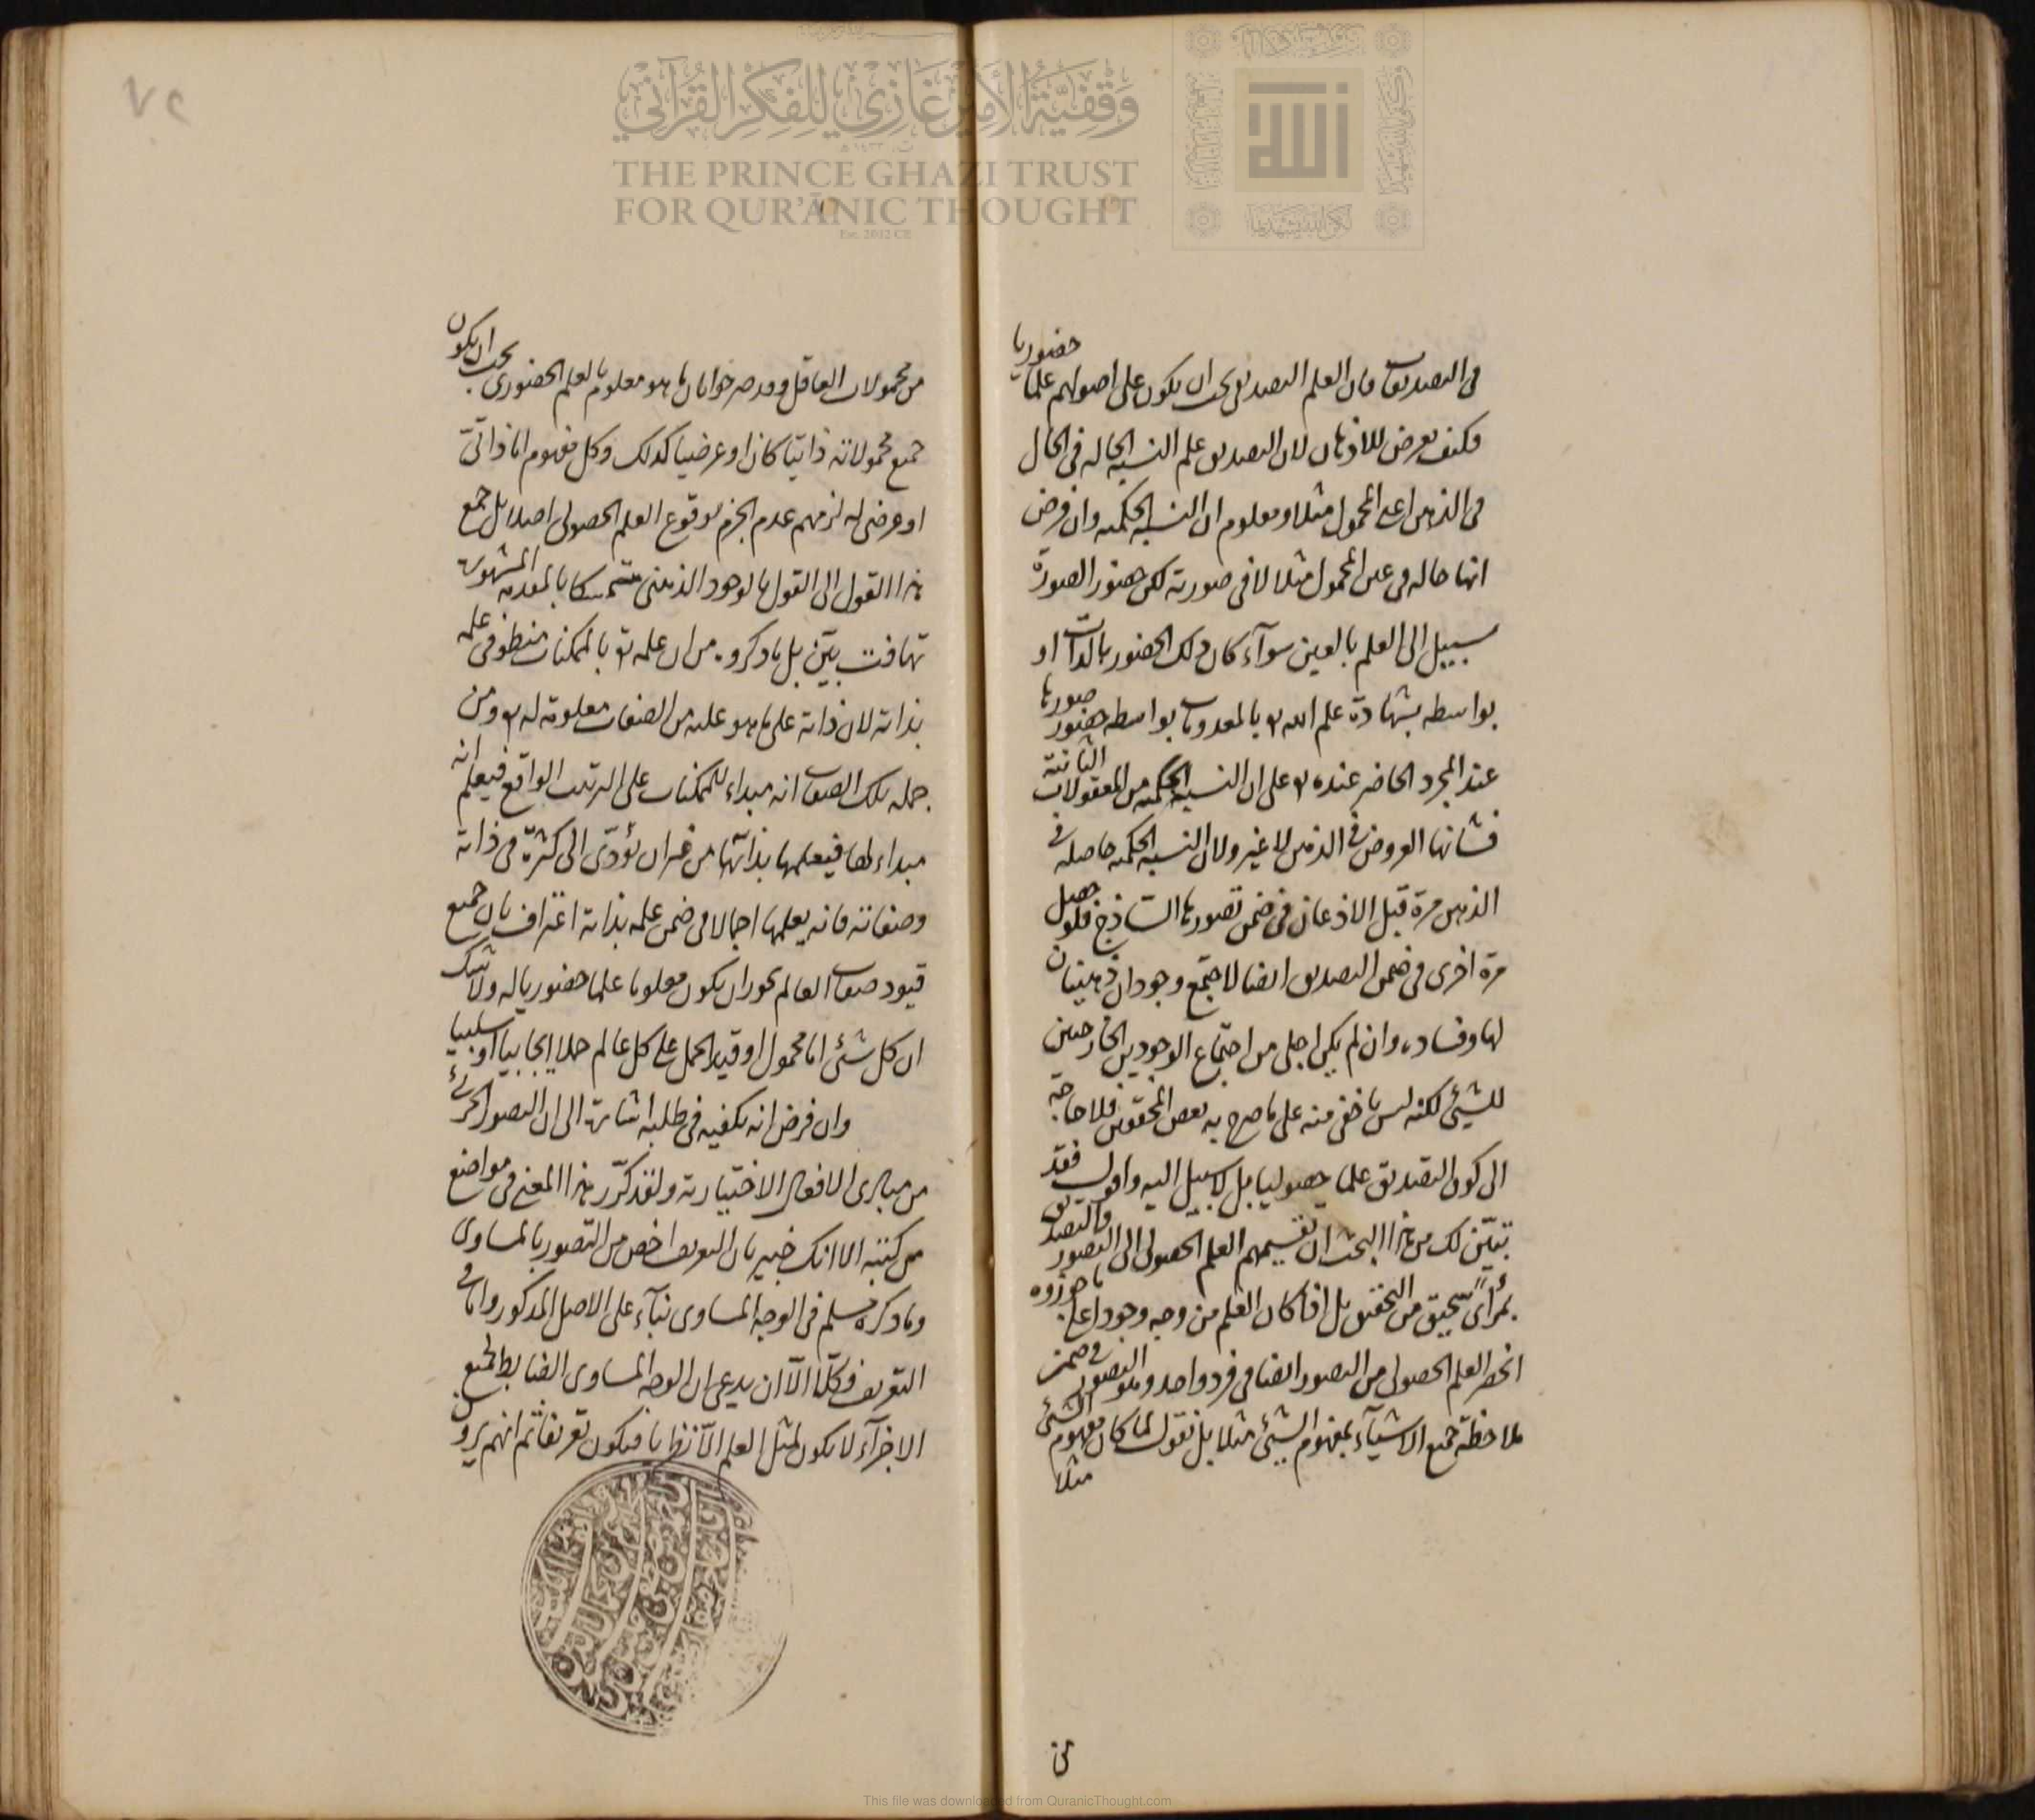 في التصديقات فان العلم التصديقي يجب ان يكون على اصولهم علما حضوريا
فكيف يعرض للاذهان لان التصديق علم النسبة الحالة في الحال
في الذهن اعني المحمول مثلا ومعلوم ان النسبة الحكمية وان فرض
انها حالة في عين المحمول مثلا لا في صورته لكن حضور الصورة
سبيل الى العلم بالعين سوآء كان ذلك الحضور بالذات او
بواسطة بشهادة علم الله تعالى بالمعدومات بواسطة حضور صورها
عند المجرد الحاضر عنده تعالى على ان النسبة الحكمية من المعقولات الثانية
فشانها العروض في الذهن لا غير ولان النسبة الحكمية حاصلة في
الذهن مرة قبل الاذعان في ضمن تصورها الساذج فلو حصل
مرة اخرى في ضمن التصديق ايضا لاجتمع وجودان ذهنيان
لها وفساده وان لم يكن اجلى من اجتماع الوجودين الخارجيين
للشيئ لكنه ليس باخفى منه على ما صرح به بعض المحققين فلا حاجة
الى كون التصديق علما حصوليا بل لا سبيل اليه واقول فقد
تبيّن لك من هذا البحث ان تقسيمهم العلم الحصولي الى التصور والتصديق
بمرأى سحيق من التحقيق بل اذا كان العلم من وجه وجود اعلى ما جوزوه
انحصر العلم الحصولي من التصور ايضا في فرد واحد وهو التصور في ضمن
ملاحظة جميع الاشيآء بمفهوم الشيئ مثلا بل نقول لما كان مفهوم الشيئ
مثلا
من محمولات العاقل وقد صرحوا بان ما هو معلوم بالعلم الحضوري يجب ان يكون
جميع محمولاته ذاتيا كان او عرضيا كذلك وكل مفهوم اما ذاتيّ
او عرضي له لزمهم عدم الجزم بوقوع العلم الحصولي اصلا بل جمع
هذا القول الى القول بالوجود الذهني متمسكا بالمقدمة المشهورة
تهافت بيّن بل ما ذكروه من ان علمه تعالى بالممكنات منطو في علمه
بذاته لان ذاته على ما هو عليه من الصفات معلومة له تعالى ومن
جملة تلك الصفات انه مبداء للممكنات على الترتيب الواقع فيعلم انه
مبداء لها فيعلمها بذاتها من غير ان يؤدّى الى كثرة في ذاته
وصفاته فانه يعلمها اجمالا في ضمن علمه بذاته اعتراف بان جميع
قيود صفات العالم يجوز ان يكون معلوما علما حضوريا له ولا شك
ان كل شئ اما محمول او قيد لمحمول على كل عالم حملا ايجابيا او سلبيا
وان فرض انه يكفيه في طلبه اشارة الى ان التصور الجزئي
من مبادى الافعال الاختيارية ولقد كرّر هذا المعنى في مواضع
من كتبه الا انك خبير بان التعريف اخص من التصور بالمساوى
وما ذكره مسلم في الوجه المساوى بنآء على الاصل المذكور واما في
التعريف فكلّا الّا ان يدعى ان الوجه المساوى الضابط لجميع
الاجزآء لا يكون لمثل العلم الّا نظريا فيكون تعريفا ثم انهم يرو